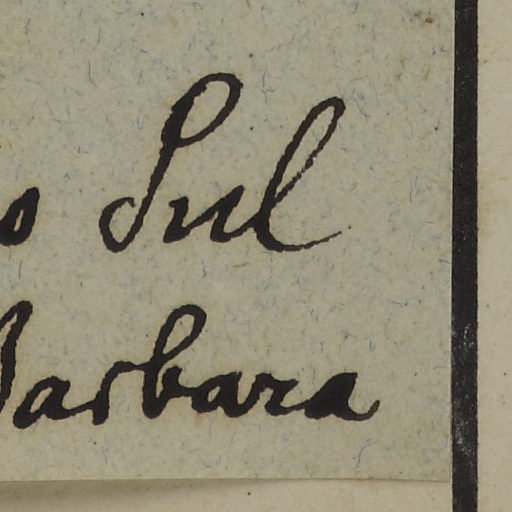 o Sul
Barbara